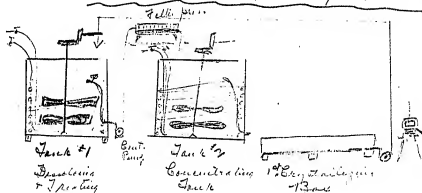 Filter press
Tank #1
Dissolving
& Treating
Cent.
Pump
Tank #2
Concentrating
Tank
1st Crystallizing
Box